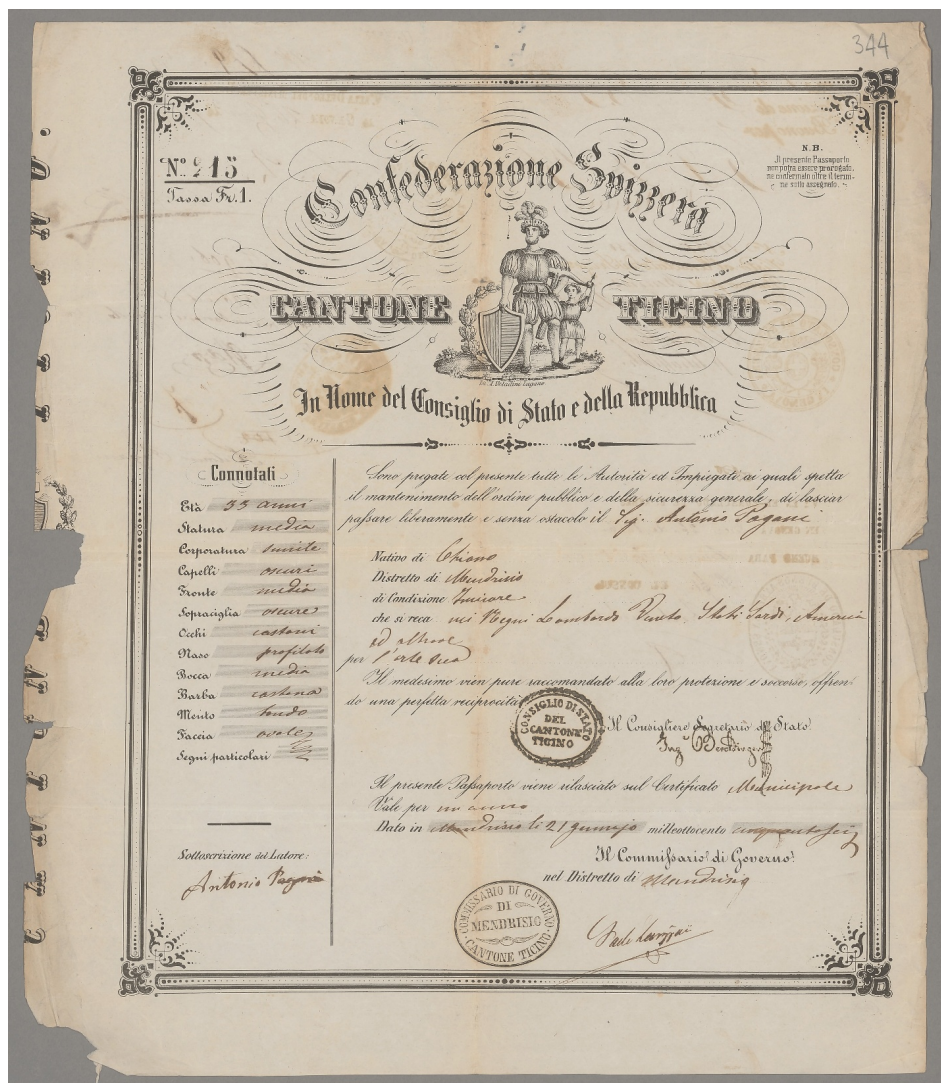 344
N.º 215
Tassa Fr. 1.
N.B.
Il presente Passaporto
non potrà essere prorogato,
nè confermato oltre il termi-
ne sotto assegnato.
Confederazione Svizzera
CANTONE TICINO
In Nome del Consiglio di Stato e della Repubblica
Connotati
Età 35 anni
Statura media
Corporatura
Capelli oscuri
Fronte media
Sopraciglia oscure
Occhi castani
Naso profilato
Bocca media
Barba castana
Mento tondo
Faccia ovale
Segni particolari
Sottoscrizione del Latore:
Antonio Pagani
Sono pregate col presente tutte le Autorità ed Impiegati ai quali spetta
il mantenimento dell'ordine pubblico e della sicurezza generale, di lasciar
passare liberamente e senza ostacolo il Sig. Antonio Pagani
Nativo di Chiasso
Distretto di Mendrisio
di Condizione
che si reca nei Regni Lombardo Veneto, Stati Sardi, America
ed altrove
per l'arte sua
Il medesimo vien pure raccomandato alla loro protezione e soccorso, offren-
do una perfetta reciprocità
CONSIGLIO DI STATO
DEL
CANTONE
TICINO
Il Consigliere Segretario di Stato
Il presente Passaporto viene rilasciato sul Certificato Municipale
Vale per un anno
Dato in Mendrisio li 21 gennajo milleottocento cinquantasei
Il Commissario di Governo
nel Distretto di Mendrisio
COMMISSARIO DI GOVERNO
DI
MENDRISIO
CANTONE TICINO